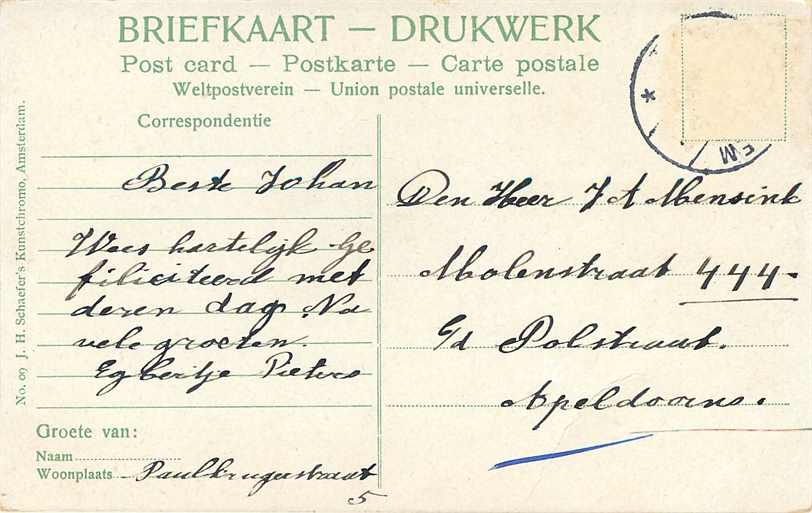 BRIEFKAART — DRUKWERK
Post card — Postkarte — Carte postale
Weltpostverein — Union postale universelle.
Correspondentie
Beste Johan
Wees hartelijk ge
filiciteerd met
deren dag Na
vele groeten.
Egbertje Pieters
Groete van:
Naam
Woonplaats Paulkrugerstraat
5
Den Heer J A Mensink
Molenstraat 444-
G/d Polstraat.
Apeldoorns.
No. 09 J. H. Schaefer's Kunstchromo, Amsterdam.